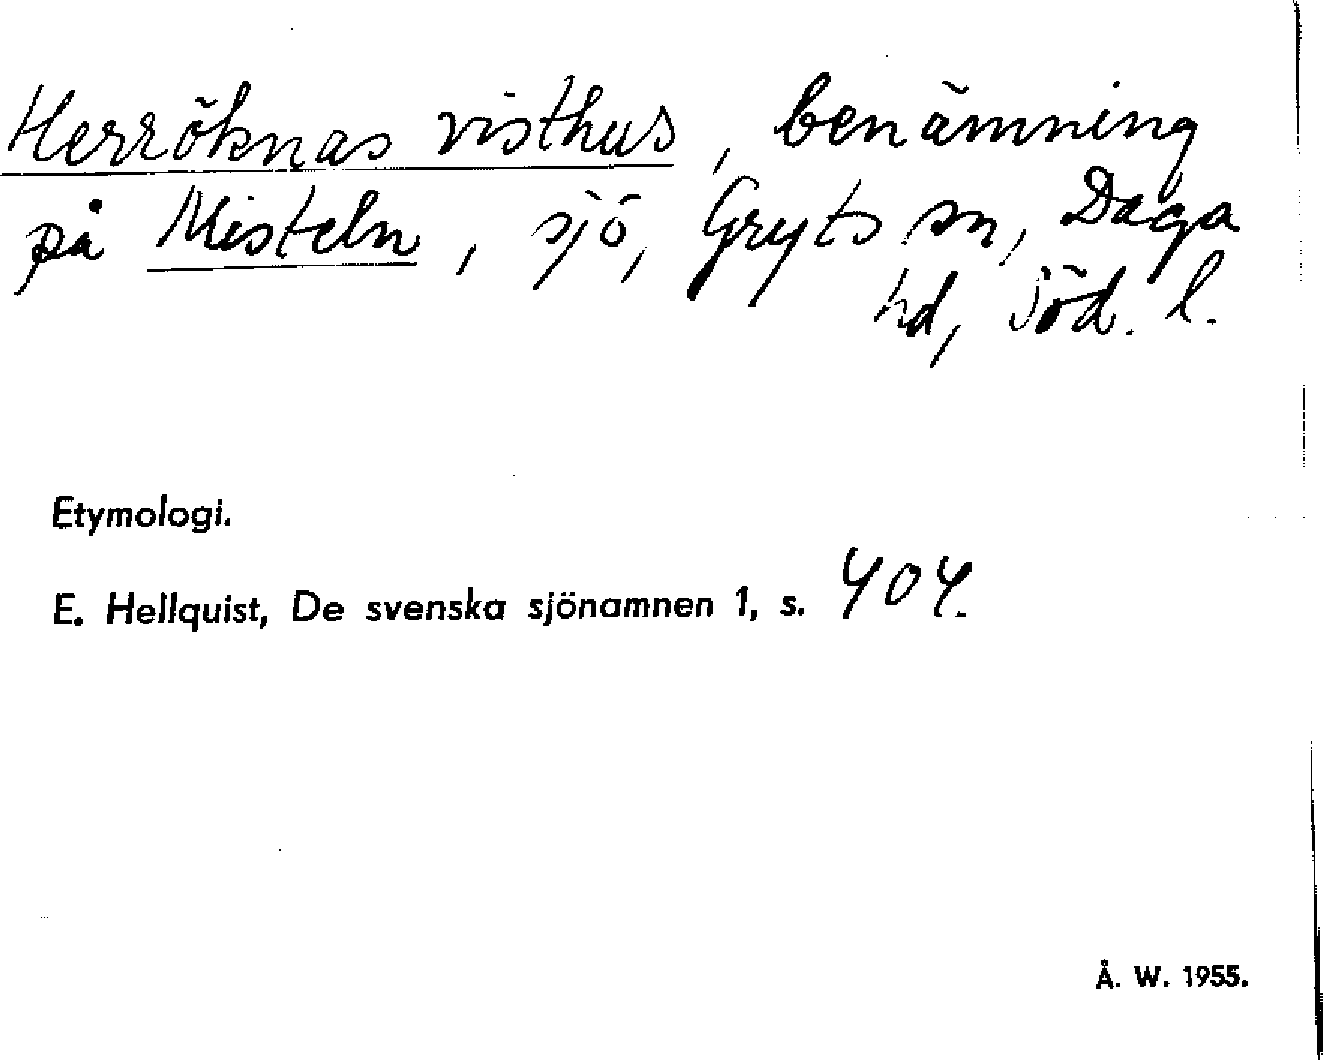 Herröknas visthus, benämning
på Misteln, sjö, Gryts sn, Daga
hd, Söd. l.
Etymologi.
E. Hellquist, De svenska sjönamnen 1, s. 404.
Å. W. 1955.